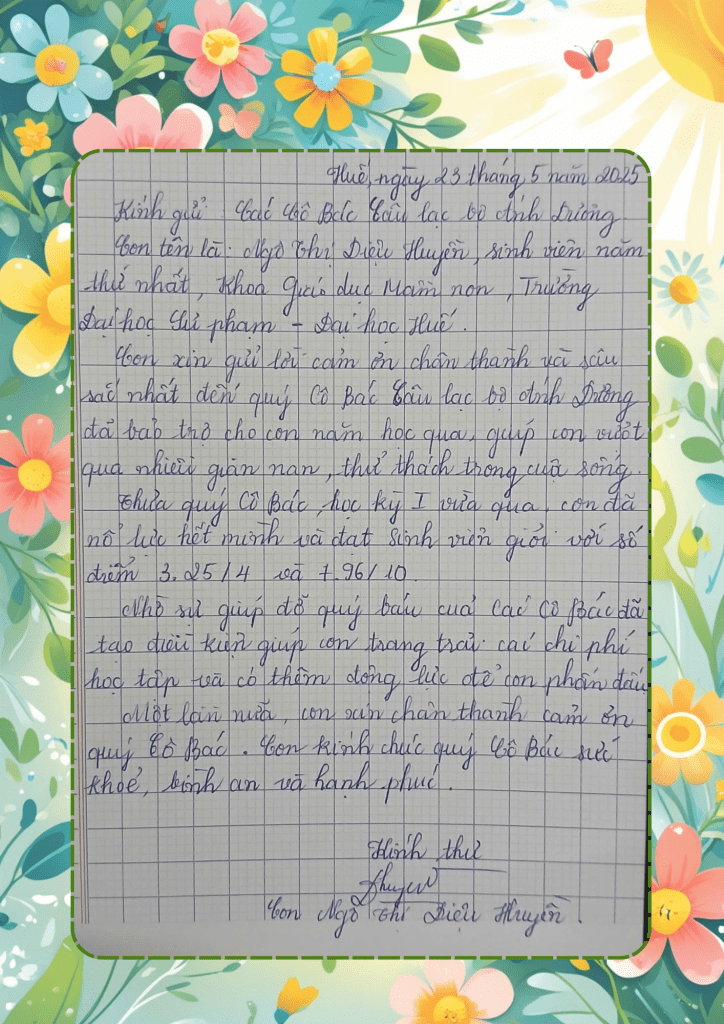 Huế, ngày 23 tháng 5 năm 2025
Kính gửi: Các Cô Bác Câu lạc bộ Ánh Dương
Con tên là: Ngô Thị Diệu Huyền, sinh viên năm
thứ nhất, Khoa Giáo dục Mầm non, Trường
Đại học Sư phạm - Đại học Huế.
Con xin gửi lời cảm ơn chân thành và sâu
sắc nhất đến quý Cô Bác Câu lạc bộ Ánh Dương
đã bảo trợ cho con năm học qua, giúp con vượt
qua nhiều gian nan, thử thách trong cuộc sống.
Thưa quý Cô Bác, học kỳ I vừa qua, con đã
nỗ lực hết mình và đạt sinh viên giỏi với số
điểm 3.25/4 và 7.96/10
Nhờ sự giúp đỡ quý báu của các Cô Bác đã
tạo điều kiện giúp con trang trải các chi phí
học tập và có thêm động lực để con phấn đấu
Một lần nữa, con xin chân thành cảm ơn
quý Cô Bác. Con kính chúc quý Cô Bác sức
khoẻ, bình an và hạnh phúc.
Kính thư
Huyền
Con Ngô Thị Diệu Huyền.